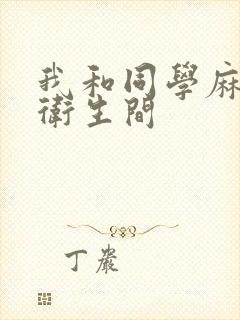 我和同學麻
衛生間
丁嚴